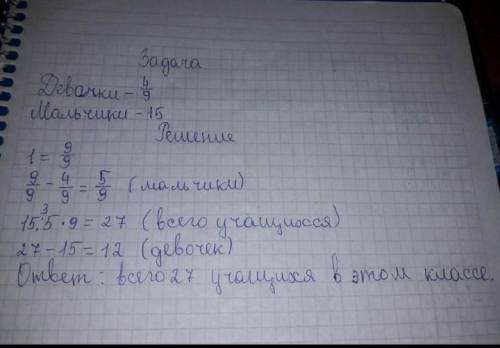 Задача
Девочки - 4/9
Мальчики - 15
Решение
1 = 9/9
9/9 - 4/9 = 5/9 (мальчики)
3
15:5·9 = 27 (всего учащихся)
27 - 15 = 12 (девочек)
Ответ: всего 27 учащихя в этом классе.